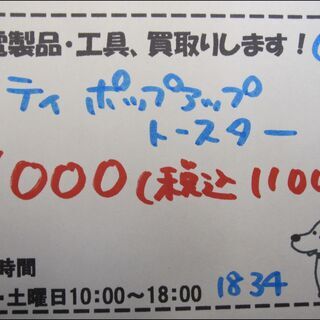 電製品・工具、買取りします！
ティ ポップアップ
トースター
1000(税込1100
時間
・土曜日10:00～18:00
1834